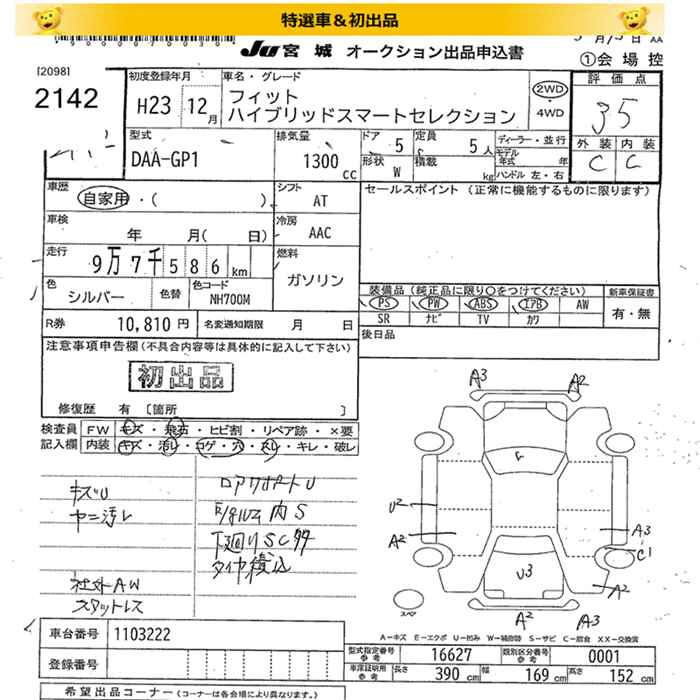 特選車＆初出品
JU宮城 オークション出品申込書
①会場控
[2098]
2142
初度登録年月
H23 12月
車名・グレード
フィット
ハイブリッドスマートセレクション
2WD
4WD
評価点
35
外装 内装
C C
型式
DAA-GP1
排気量
1300cc
ドア 5
定員 5人
形状 W
積載 kg
ディーラー・並行
モデル年式 年
ハンドル 左・右
車歴
自家用・( )
シフト AT
セールスポイント (正常に機能するものに限ります)
車検
年 月( 日)
冷房 AAC
走行
9万7千586km
燃料
ガソリン
色
シルバー
色替
色コード
NH700M
装備品 (純正品に限り○をつけてください)
新車保証書
PS PW ABS エアB AW
有・無
SR ナビ TV カワ
R券 10,810円
名変通知期限 月 日
後日品
注意事項申告欄 (不具合内容等は具体的に記入して下さい)
初出品
修復歴 有 [箇所 ]
検査員 FW キズ・飛石・ヒビ割・リペア跡・×要
記入欄 内装 キズ・汚レ・コゲ・穴・スレ・キレ・破レ
キズU
ヤニ汚レ
社外AW
スタットレス
ロアサポートU
内S
下廻りSC
タイヤ積込
A3
A2
G
U2
A2
A3
C1
U3
A2
A2
A3
スペア
A−キズ E−エクボ U−凹み W−補修跡 S−サビ C−腐食 XX−交換済
車台番号 1103222
登録番号
型式指定番号 参考 16627
類別区分番号 参考 0001
車庫証明用 参考 長さ 390cm 幅 169cm 高さ 152cm
希望出品コーナー (コーナーは各会場により異なります。)